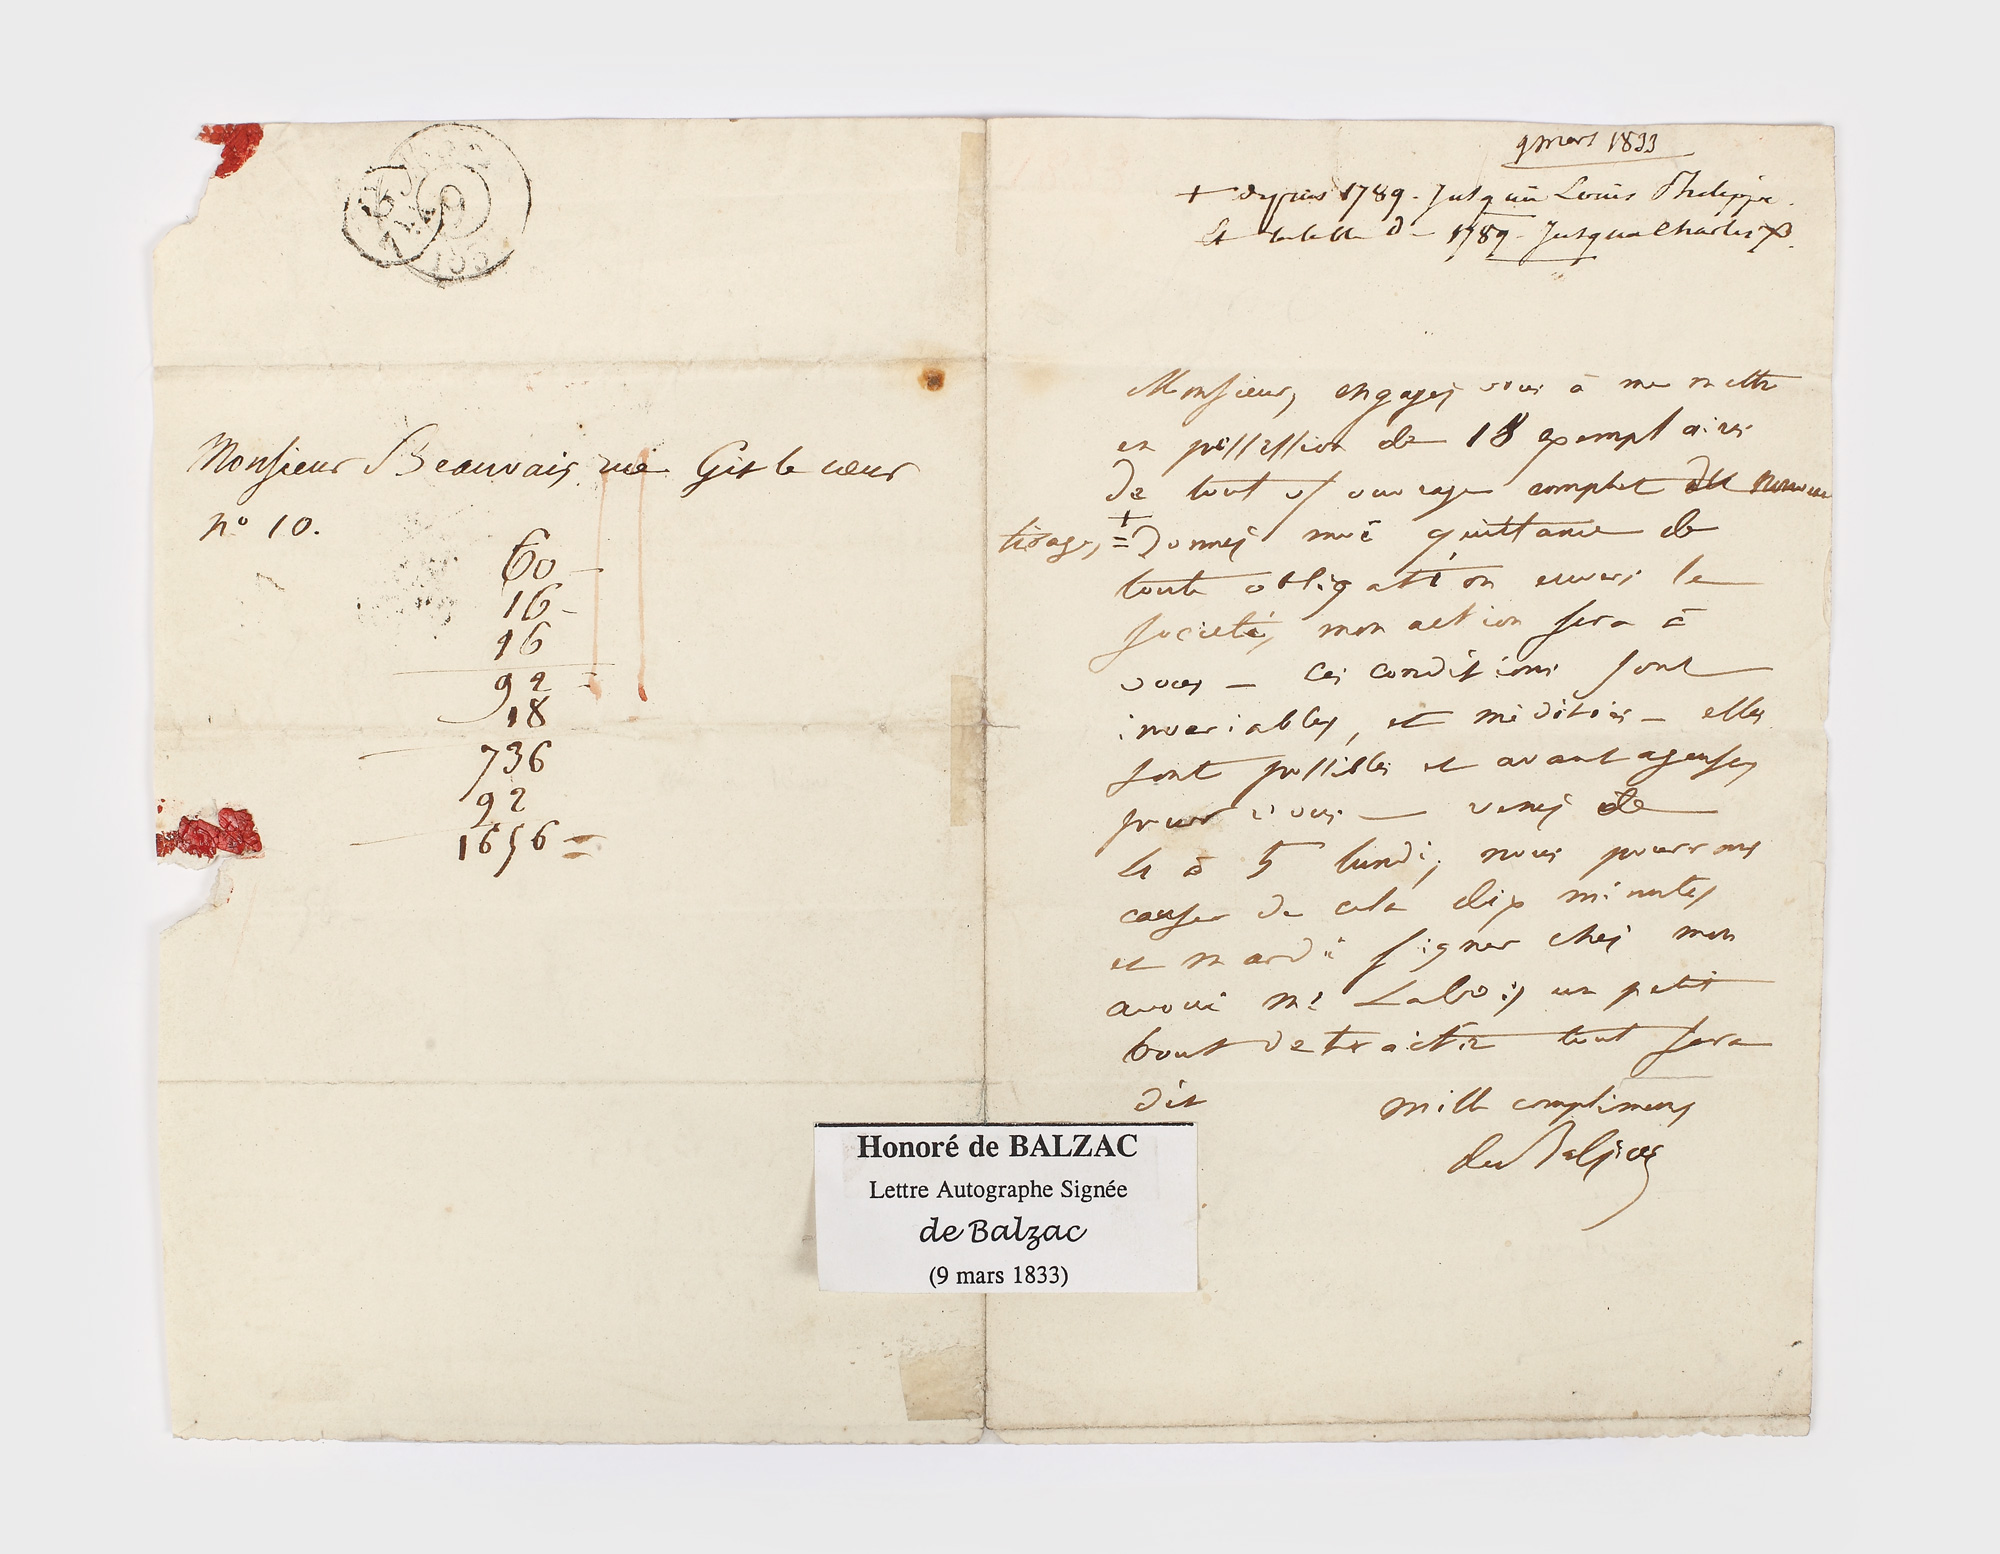 Monsieur Beauvais, rue Git le cœur
n° 10.
60
16
16
92
18
736
92
1656
9 mars 1833
+ depuis 1789 - jusqu'au Louis Philippe.
Et de 1789 - jusqu'a Charles X.
Monsieur, engagez vous à me mettre
en possession de 18 exemplaires
de tout ouvrage complet du nouveau
tirage, + = Donnez moi quittance de
toute obligation envers la
société, mon action sera à
vous — ces conditions sont
invariables, et méditées — elles
sont possibles et avantageuses
pour vous — venez de
4 à 5 lundi, nous pourrons
causer de cela dix minutes
et mardi signer chez mon
avoué Mr Labois, un petit
bout de traité tout sera
dit mille compliments
de Balzac
Honoré de BALZAC
Lettre Autographe Signée
de Balzac
(9 mars 1833)